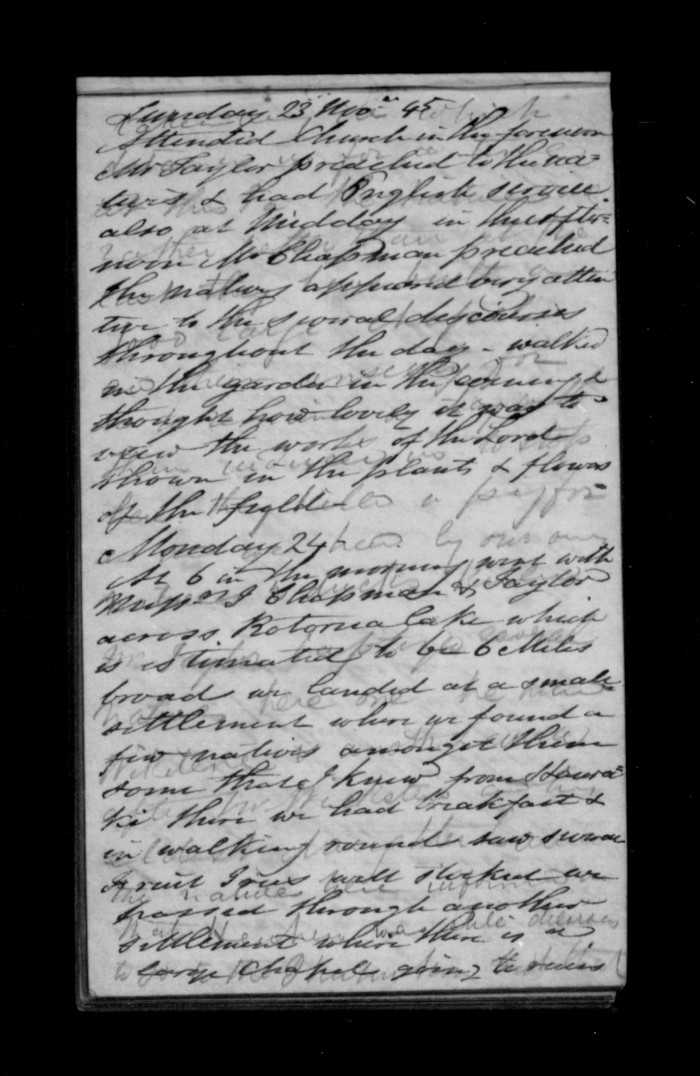 Sunday 23 Nov 45
Attended Church in the forenoon
Mr Taylor preached to the na=
tives & had English service
also at Midday in the after=
noon Mr Chapman preached
the natives appeared very atten
tive to the several discourses
throughout the day - walked
in the garden in the evening &
thought how lovely it was to
view the works of the Lord
shown in the plants & flowers
of the field
Monday 24
At 6 in the morning went with
Messrs J Chapman & Taylor
across Rotorua Lake which
is estimated to be 6 Miles
broad we landed at a small
settlement where we found a
few natives amongst them
some that I knew from Haura=
ki there we had breakfast &
in walking round saw several
Fruit Trees well stocked we
passed through another
settlement where there is a
large Chapel going to ruins